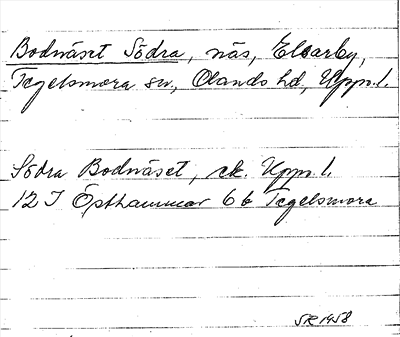 Bodnäset Södra, näs, Elvarby,
Tegelsmora sn, Olands hd, Upps. l.
Södra Bodnäset, ek. Upps. l.
12 I Östhammar 6 b Tegelsmora
SR 1958